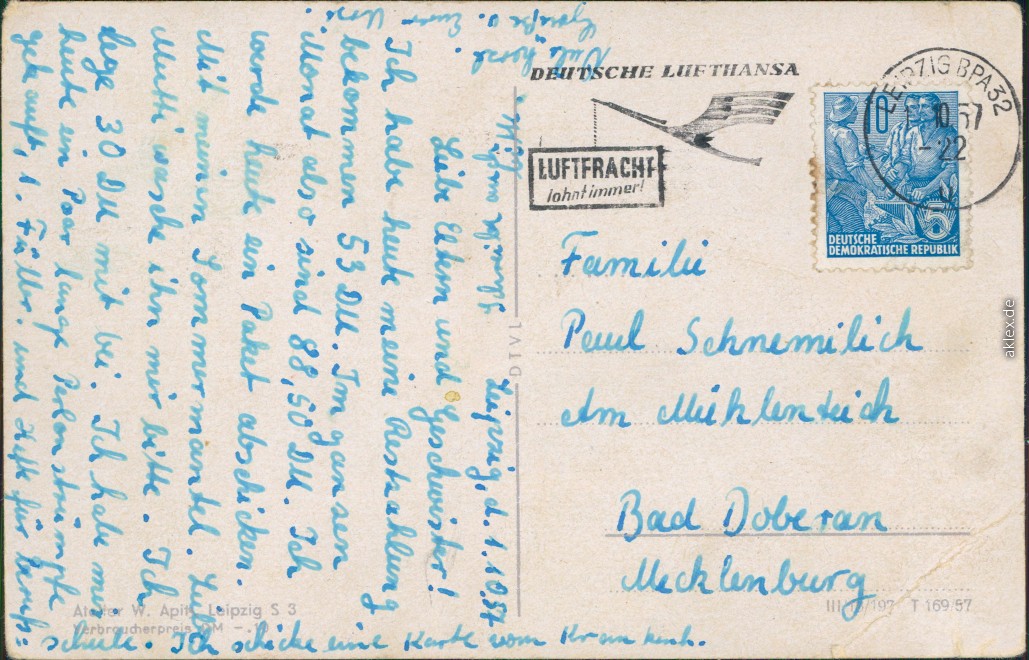 Leipzig, d. 1.10.57
Liebe Eltern und Geschwister!
Ich habe heute meine Restzahlung
bekommen 53 DM. Im ganzen
Monat also sind 88,50 DM. Ich
werde heute ein Paket abschicken.
Mit meinen Sommermantel.
Mutti wasche ihn mir bitte. Ich
lege 30 DM mit bei. Ich habe mir
heute ein Paar lange Perlonstrümpfe
gekauft, 1. Füller und Heft für Berufs=
schule. Ich schicke eine Karte vom Krankenh.
Grüße v. Eurer
DEUTSCHE LUFTHANSA
LUFTFRACHT
lohnt immer!
LEIPZIG BPA 32
10.57
-22
10
5
DEUTSCHE
DEMOKRATISCHE REPUBLIK
Familie
Paul Schnemilich
Am Mühlenteich
Bad Doberan
Mecklenburg
Atelier W. Apitz, Leipzig S 3
Verbraucherpreis DM
T 169/57
aklex.de